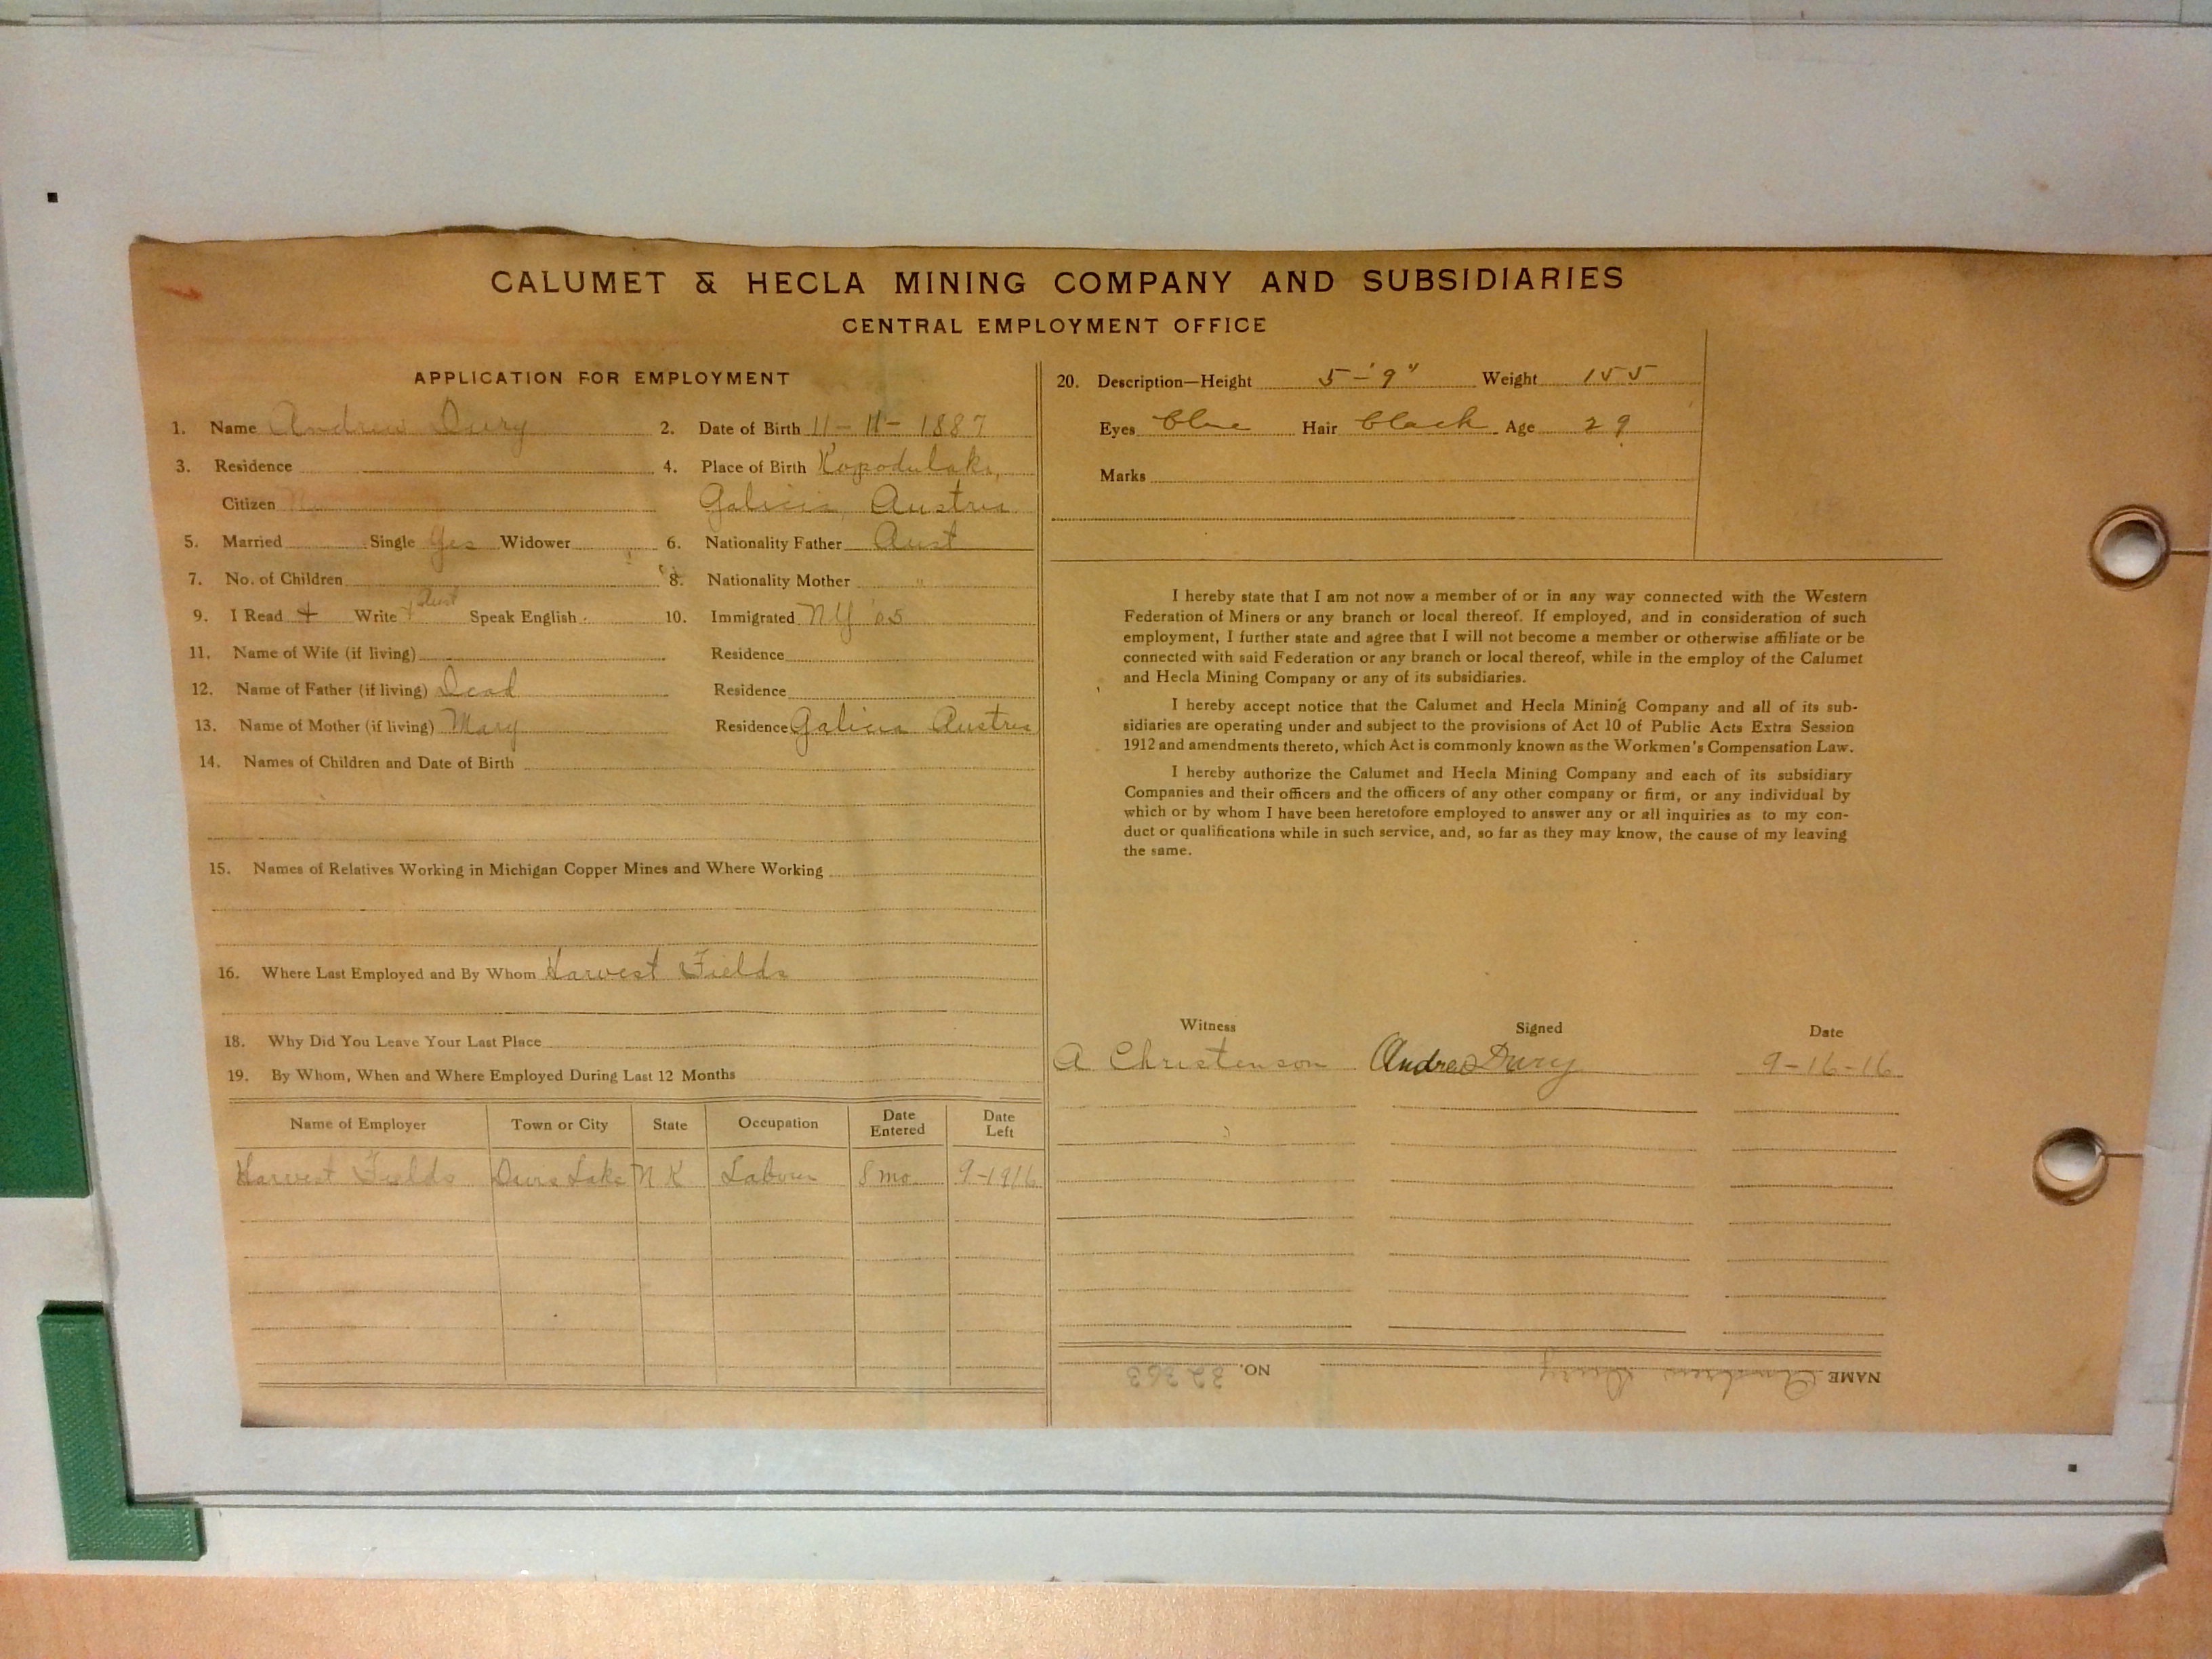 CALUMET & HECLA MINING COMPANY AND SUBSIDIARIES
CENTRAL EMPLOYMENT OFFICE
APPLICATION FOR EMPLOYMENT
1. Name Andrew Dury
2. Date of Birth 11-11-1887
3. Residence
4. Place of Birth
Citizen
Galicia, Austria
5. Married Single Yes Widower
6. Nationality Father Aust
7. No. of Children
8. Nationality Mother "
9. I Read + Write + Aust Speak English
10. Immigrated NY '05
11. Name of Wife (if living)
Residence
12. Name of Father (if living) Dead
Residence
13. Name of Mother (if living) Mary
Residence Galicia Austria
14. Names of Children and Date of Birth
15. Names of Relatives Working in Michigan Copper Mines and Where Working
16. Where Last Employed and By Whom Harvest Fields
18. Why Did You Leave Your Last Place
19. By Whom, When and Where Employed During Last 12 Months
Name of Employer Town or City State Occupation Date Entered Date Left
Harvest Fields Lake Labour 8 mo. 9-1916
20. Description—Height 5-'9" Weight 155
Eyes blue Hair black Age 29
Marks
I hereby state that I am not now a member of or in any way connected with the Western
Federation of Miners or any branch or local thereof. If employed, and in consideration of such
employment, I further state and agree that I will not become a member or otherwise affiliate or be
connected with said Federation or any branch or local thereof, while in the employ of the Calumet
and Hecla Mining Company or any of its subsidiaries.
I hereby accept notice that the Calumet and Hecla Mining Company and all of its sub-
sidiaries are operating under and subject to the provisions of Act 10 of Public Acts Extra Session
1912 and amendments thereto, which Act is commonly known as the Workmen's Compensation Law.
I hereby authorize the Calumet and Hecla Mining Company and each of its subsidiary
Companies and their officers and the officers of any other company or firm, or any individual by
which or by whom I have been heretofore employed to answer any or all inquiries as to my con-
duct or qualifications while in such service, and, so far as they may know, the cause of my leaving
the same.
Witness Signed Date
A Christenson Andrew Dury 9-16-16
NAME Andrew Dury NO. 32363